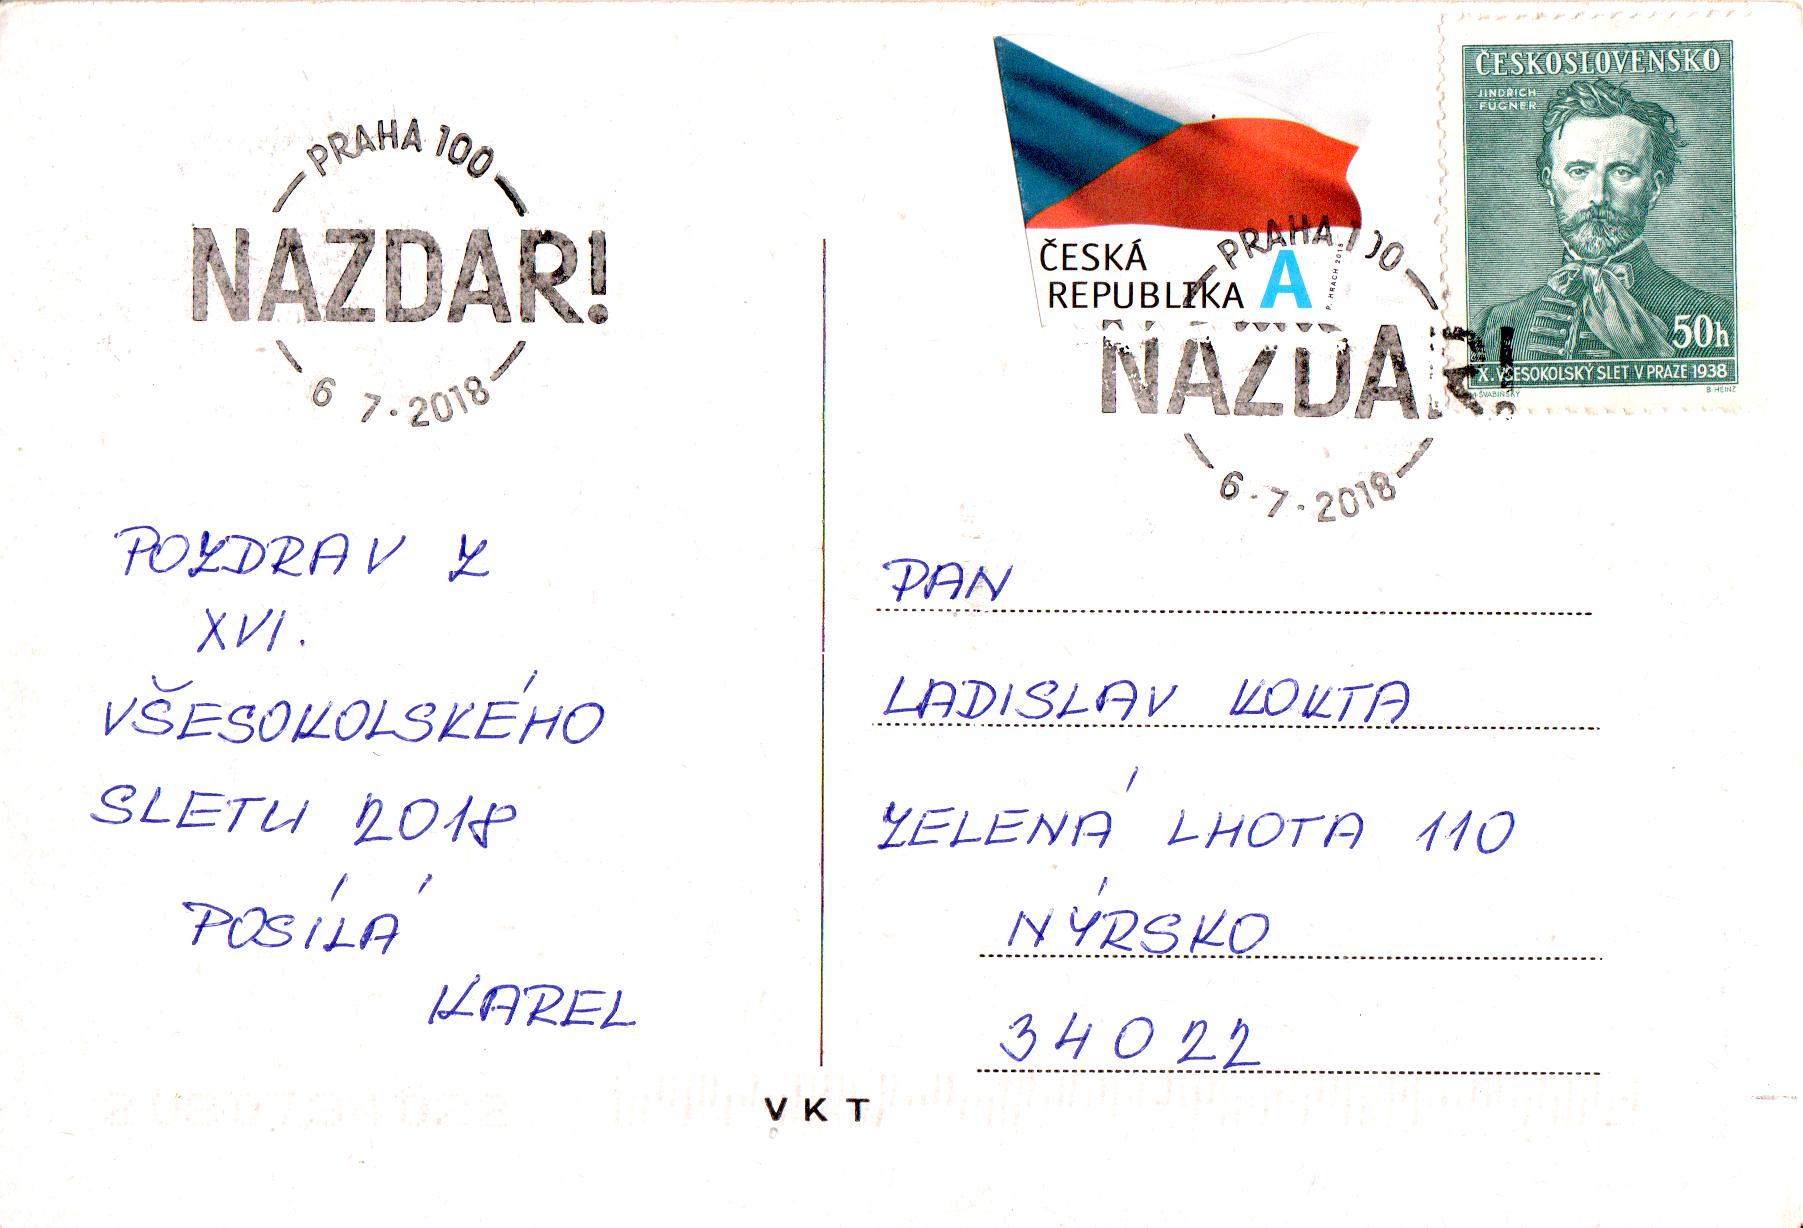 PRAHA 100
NAZDAR!
6 7.2018
ČESKÁ
REPUBLIKA A
P. HRACH 2015
ČESKOSLOVENSKO
JINDŘICH
FÜGNER
50h
X. VŠESOKOLSKÝ SLET V PRAZE 1938
M. ŠVABINSKÝ
B. HEINZ
PRAHA 100
NAZDAR!
6.7.2018
POZDRAV Z
XVI.
VŠESOKOLSKÉHO
SLETU 2018
POSÍLÁ
KAREL
PAN
LADISLAV KOKTA
ZELENÁ LHOTA 110
NÝRSKO
34022
VKT